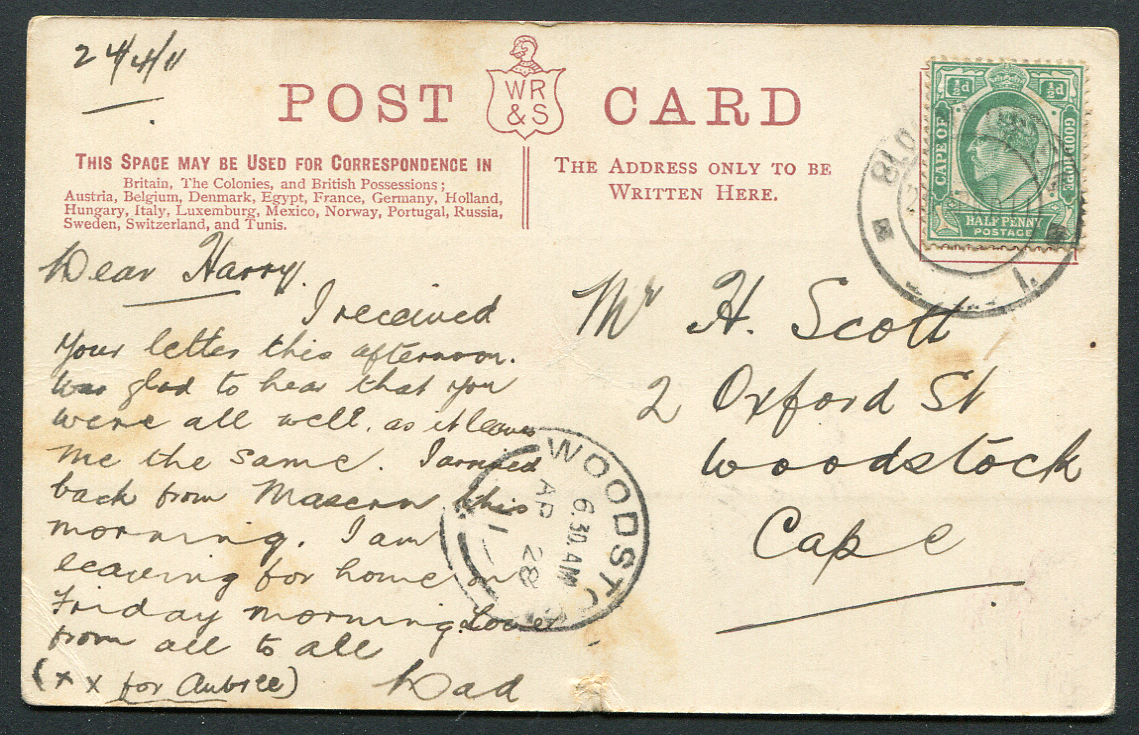 24/4/11
POST CARD
WR
&S
THIS SPACE MAY BE USED FOR CORRESPONDENCE IN
Britain, The Colonies, and British Possessions;
Austria, Belgium, Denmark, Egypt, France, Germany, Holland,
Hungary, Italy, Luxemburg, Mexico, Norway, Portugal, Russia,
Sweden, Switzerland, and Tunis.
THE ADDRESS ONLY TO BE
WRITTEN HERE.
½d ½d
CAPE OF GOOD HOPE
HALFPENNY
POSTAGE
BLO
1.
Dear Harry.
I received
your letter this afternoon.
was glad to hear that you
were all well, as it leaves
me the same. I arrived
back from Maseru this
morning. I am
leaving for home on
Friday morning. Love
from all to all
(x x for Aubree)
Dad
Mr H. Scott
2 Oxford St
Woodstock
Cape
WOODSTO
6.30.AM
AP 28
11